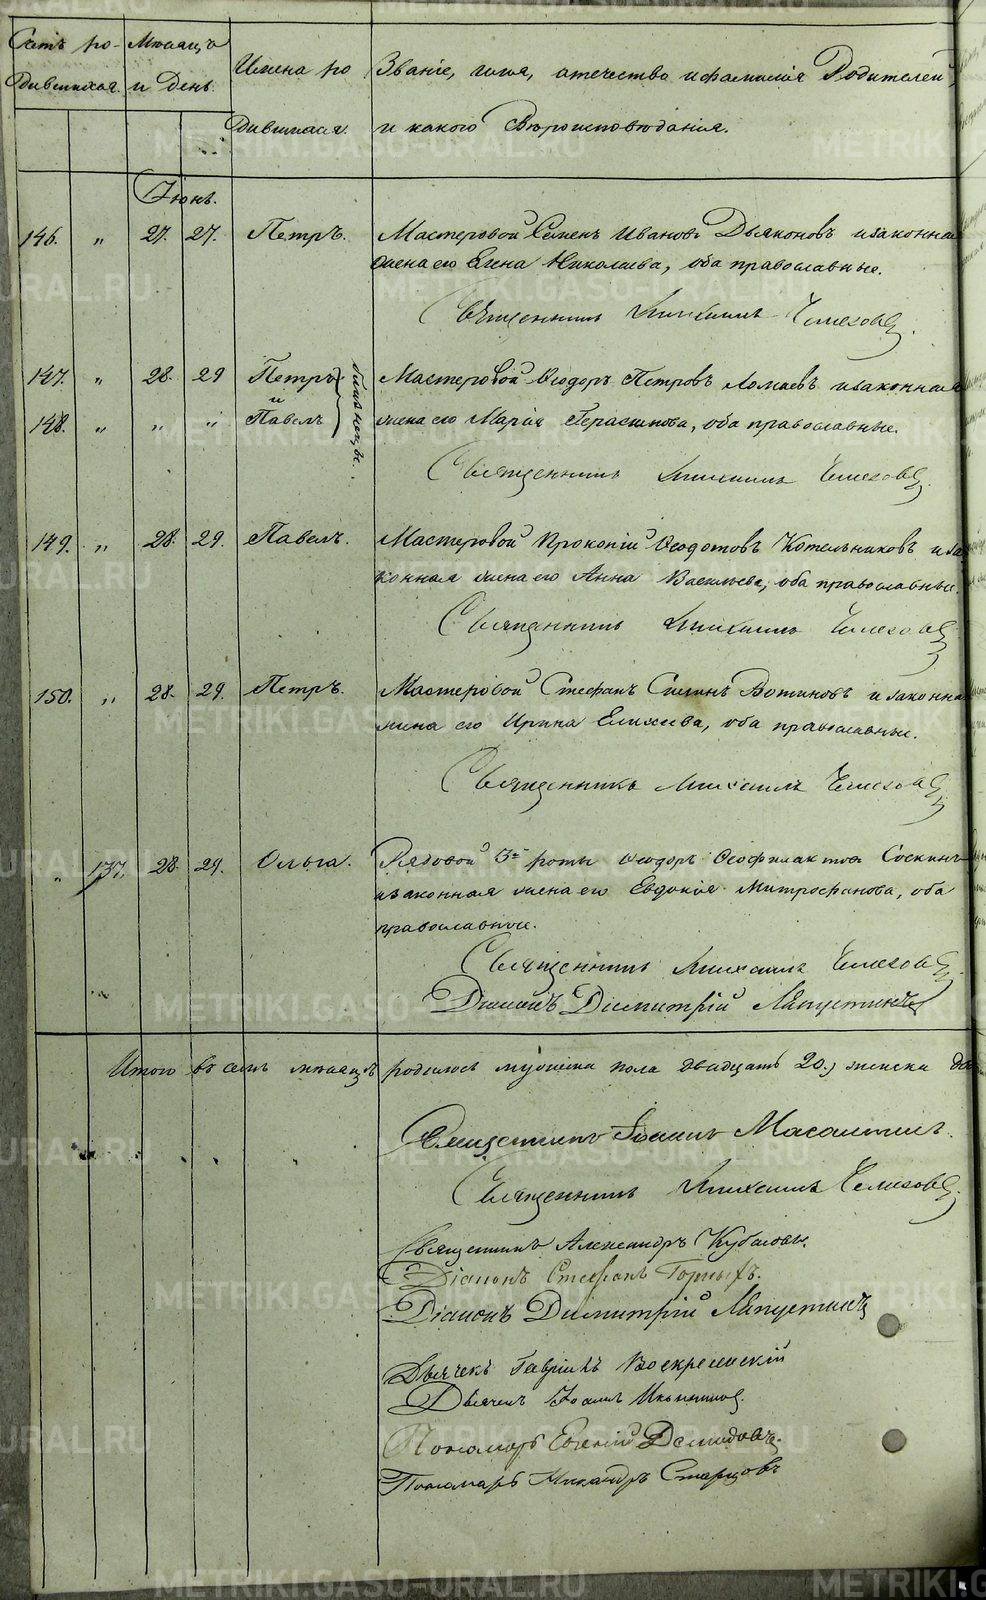 Счетъ ро- Мѣсяцъ Имена ро Званіе, имя, отечество и фамилія Родителей,
дившихся. и День. дившихся. и какого Вѣроисповѣданія.
Іюнь.
146. " 27. 27. Петръ. Мастеровой Семенъ Ивановъ Дьяконовъ и законная
жена его Елена Николаева, оба православные.
Священникъ Михаилъ
147. " 28. 29 Петръ Мастеровой Ѳеодоръ Петровъ Ломаевъ и законная
и близнецы.
148. " " " Павелъ жена его Марія Герасимова, оба православные.
Священникъ Михаилъ
149. " 28. 29. Павелъ. Мастеровой Прокопій Ѳеодотовъ Котельниковъ и за
конная жена его Анна Васильева, оба православные.
Священникъ Михаилъ
150. " 28. 29. Петръ. Мастеровой Стефанъ Вотиновъ и законна
жена его Ирина Елисеева, оба православные.
Священникъ Михаилъ
" 137. 28. 29. Ольга. Рядовой 3й роты Ѳеодоръ Ѳеофилактовъ Соскинъ
и законная жена его Евдокія Митрофанова, оба
православные.
Священникъ Михаилъ
Діаконъ Димитрій Ляпустинъ
Итого въ семъ мѣсяцѣ родилось мужеска пола двадцать 20, женска
Священникъ Іоаннъ
Священникъ Михаилъ
Священникъ Александръ
Діаконъ Стефанъ Горныхъ.
Діаконъ Димитрій Ляпустинъ
Дьячекъ Гавріилъ Воскресенскій
Дьячекъ Іоаннъ Иконниковъ
Пономарь Евгеній Демидовъ.
Пономарь Никандръ Старцовъ
METRIKI.GASO-URAL.RU